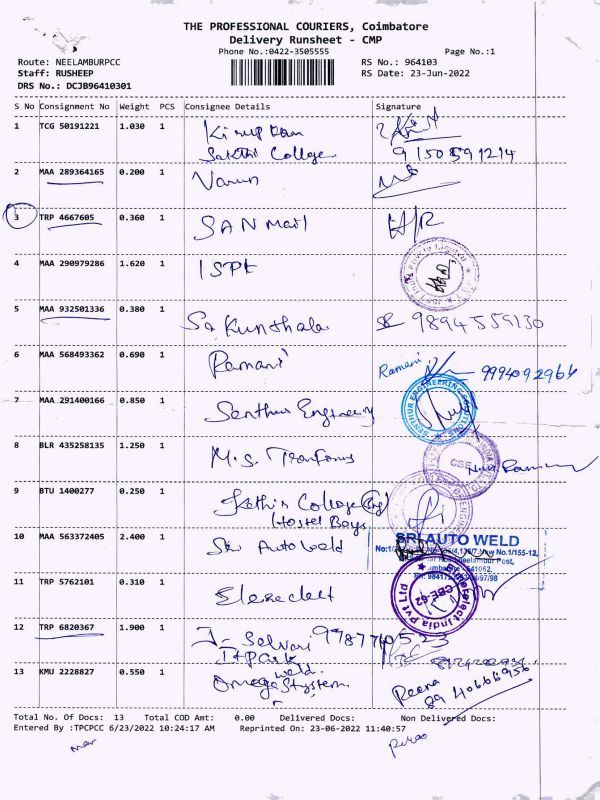 THE PROFESSIONAL COURIERS, Coimbatore
Delivery Runsheet - CMP
Phone No.:0422-3505555 Page No.:1
Route: NEELAMBURPCC RS No.: 964103
Staff: RUSHEEP RS Date: 23-Jun-2022
DRS No.: DCJB96410301
S No Consignment No Weight PCS Consignee Details Signature
1 TCG 50191221 1.030 1
Sakthi College 9150591214
2 MAA 289364165 0.200 1 Varun
3 TRP 4667605 0.360 1 SAN Mail H/R
4 MAA 290979286 1.620 1 ISPK
5 MAA 932501336 0.380 1 Sakunthala 9894559130
6 MAA 568493362 0.690 1 Ramani Ramani 9994092966
7 MAA 291400166 0.850 1 Senthur Engineering
SENTHUR ENGINEERING
8 BLR 435258135 1.250 1 M.S.
CBE
9 BTU 1400277 0.250 1 Kathir College
Hostel Boys
10 MAA 563372405 2.400 1 Sri Auto Weld SRI AUTO WELD
New No.1/155-12,
Post,
641062
11 TRP 5762101 0.310 1
India Pvt Ltd
CBE-62
12 TRP 6820367 1.900 1 J. Selvan 9787740523
IT park
13 KMU 2228827 0.550 1 Omega weld System Reena
8940666956
Total No. Of Docs: 13 Total COD Amt: 0.00 Delivered Docs: Non Delivered Docs:
Entered By :TPCPCC 6/23/2022 10:24:17 AM Reprinted On: 23-06-2022 11:40:57